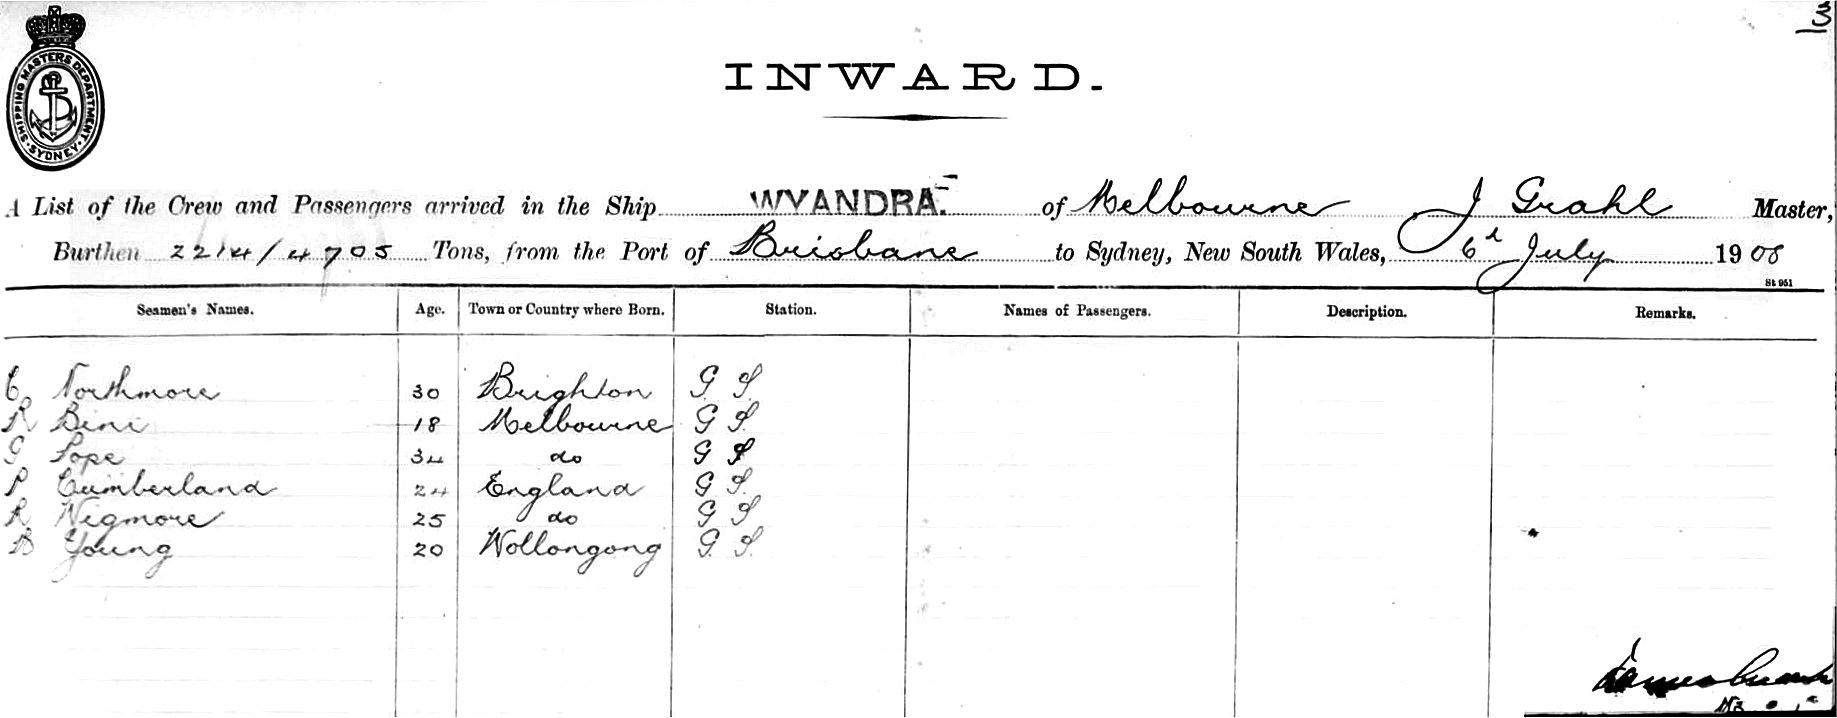 3
SHIPPING MASTERS DEPARTMENT
SYDNEY
INWARD.
A List of the Crew and Passengers arrived in the Ship WYANDRA. of Melbourne J Grahl Master,
Burthen 2214/4705 Tons, from the Port of Brisbane to Sydney, New South Wales, 6th July 1908
St 951
Seamen's Names. Age. Town or Country where Born. Station. Names of Passengers. Description. Remarks.
C Northmore 30 Brighton G S.
R Bini 18 Melbourne G S.
G Pope 34 do G S
P Cumberland 24 England G S.
R Wigmore 25 do G S
B Young 20 Wollongong G. S.